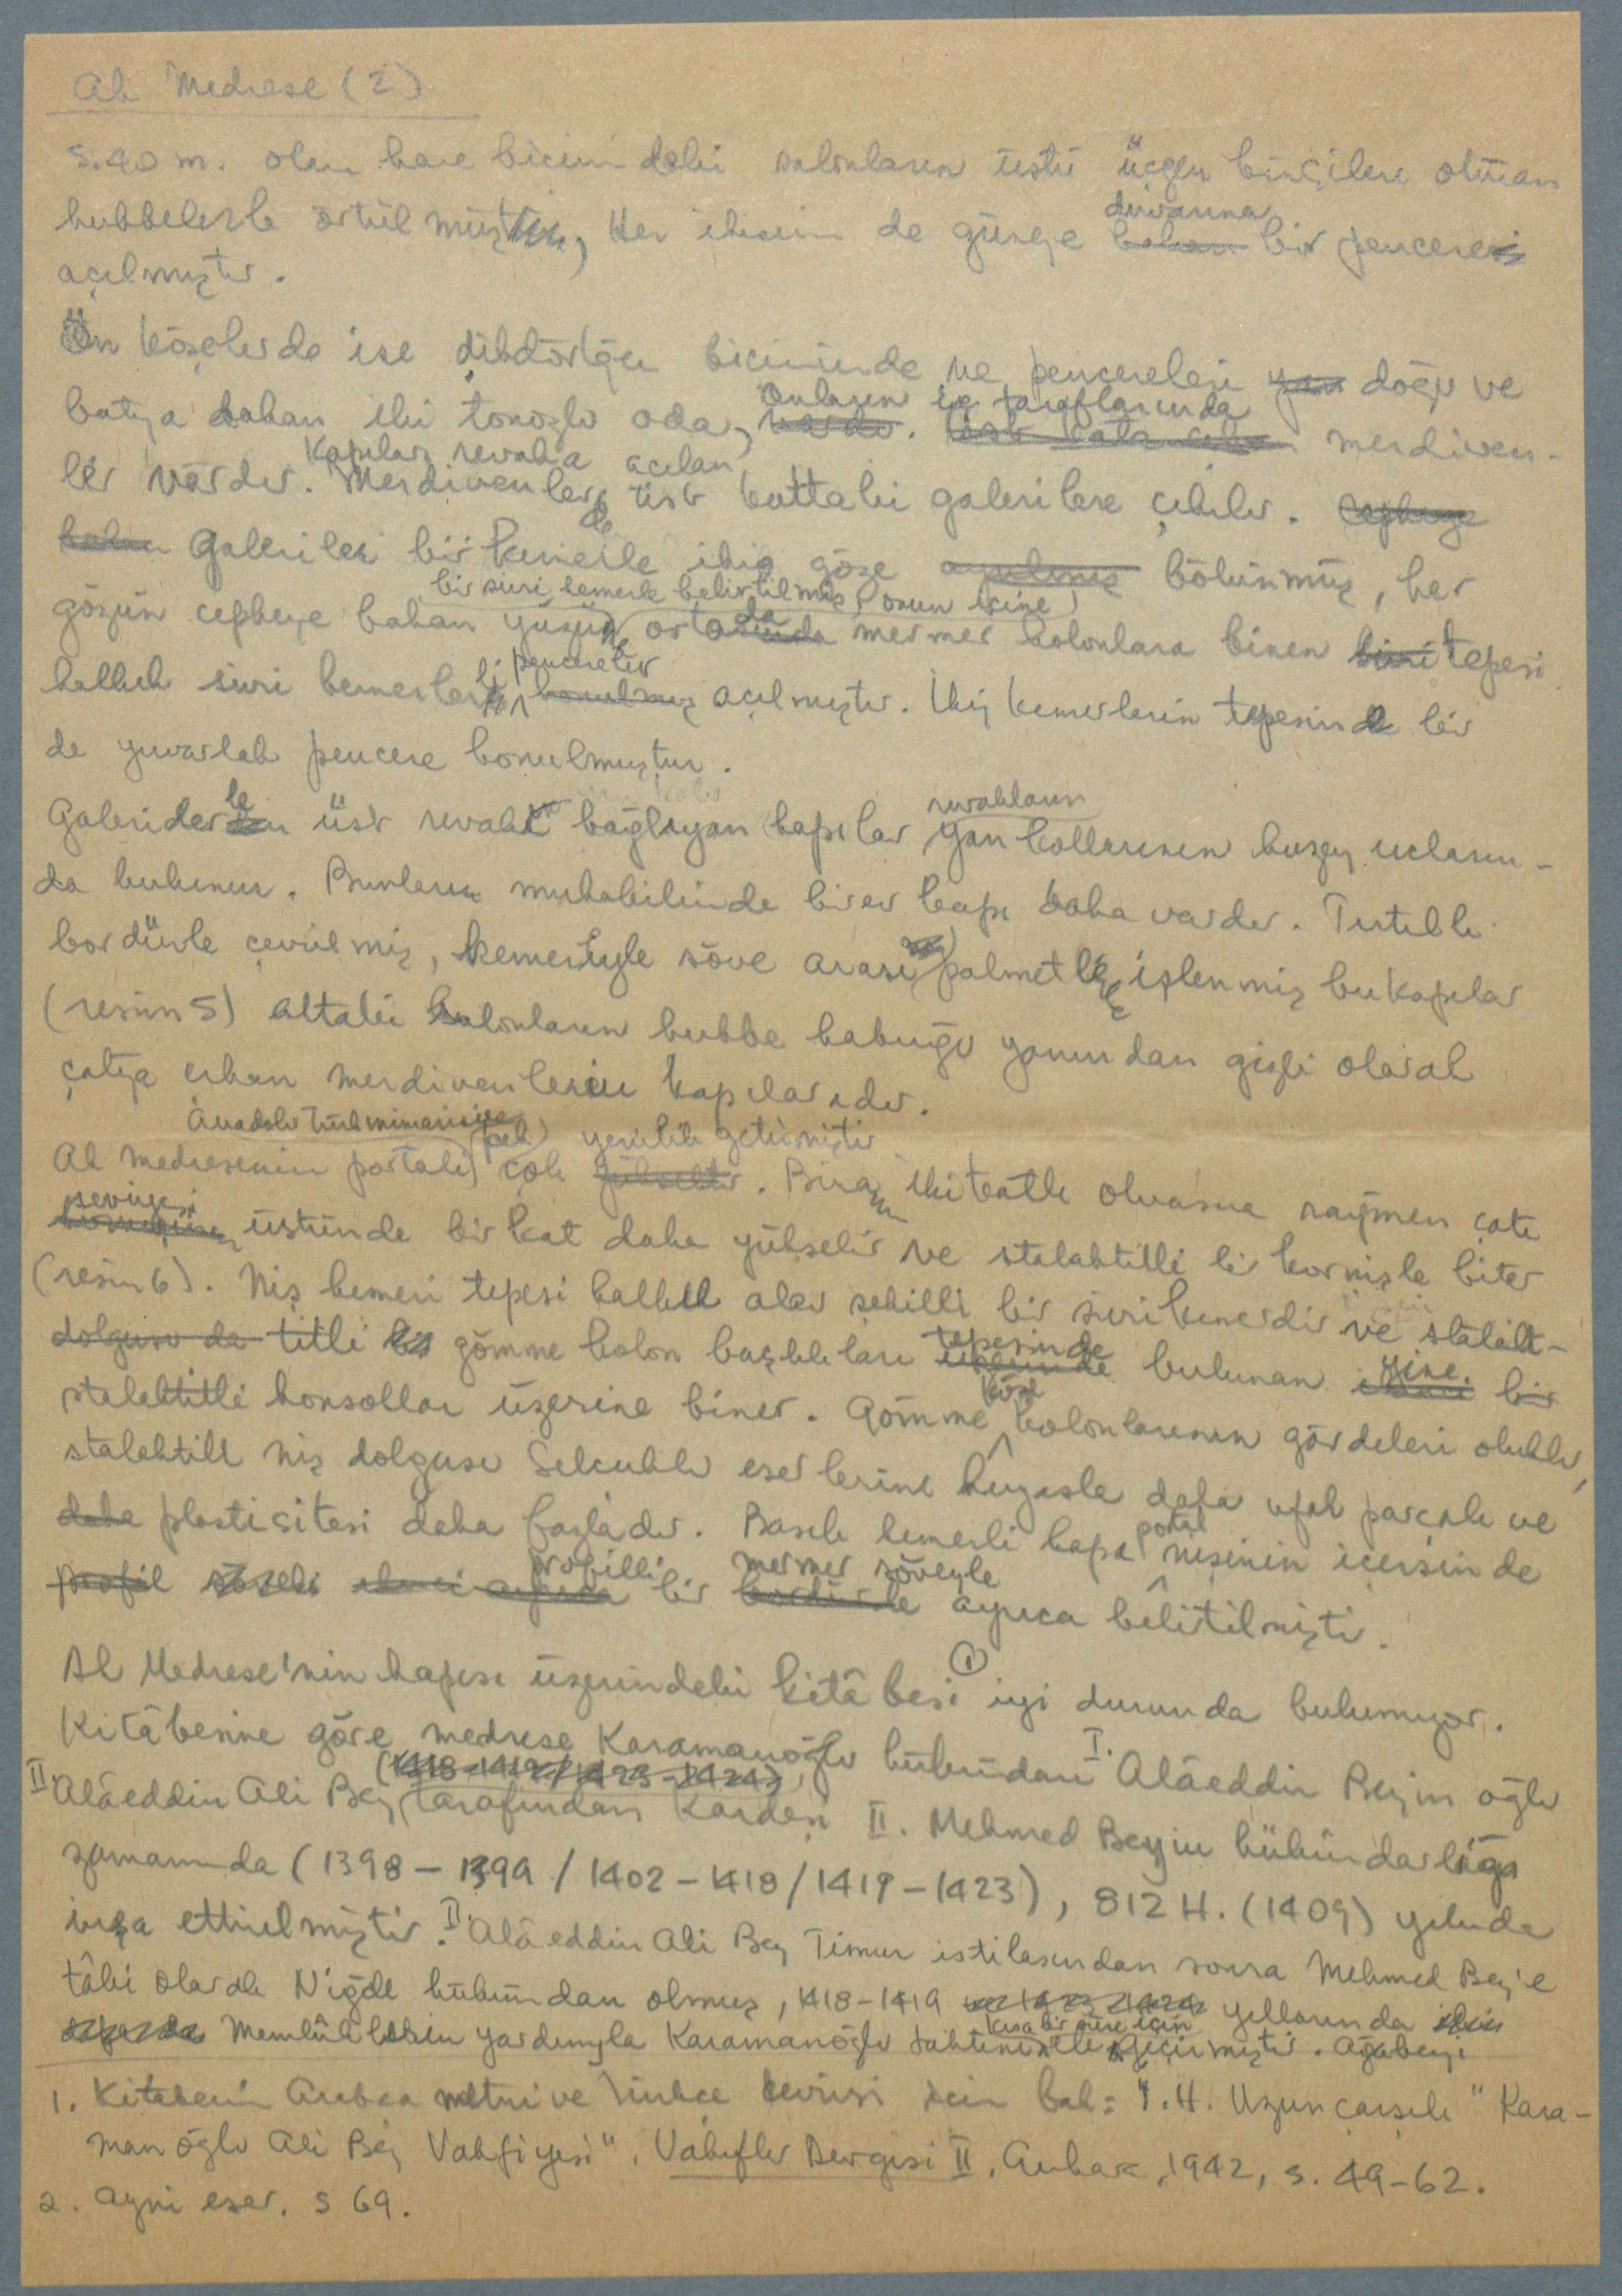 Ak Medrese (2)
5.40 m. olan kare biçimindeki salonların üstü üçgen bingilere oturan
kubbelerle örtülmüştür, Her ikisinin de güneye duvarına bir penceresi
açılmıştır.
Ön köşelerde ise dikdörtgen biçiminde ve pencereleri yan doğu ve
batıya bakan iki tonozlu oda, onların iç taraflarında merdiven-
ler vardır. Kapıları revaka açılan Merdivenlerle üst kattaki galerilere çıkılır. Cepheye
bakan Galeriler bir kemerle ikişe göze ayrılmış bölünmüş, her
gözün cepheye bakan yüzüne bir sivri kemerle belirtilmiş, onun içine ortada mermer kolonlara binen tepesi
kalkık sivri kemerli penceeler açılmıştır. İkiz kemerlerin tepesinde bir
de yuvarlak pencere konulmuştur.
Galerilerden üst revakı bağlayan kapılar revakların yan kollarının kuzey uçların-
da bulunur. Bunların mukabilinde birer kapı daha vardır. Türkçe
bordürle çevrilmiş, kemeriyle söve arası palmetle işlenmiş bu kapılar
(resim 5) alttaki salonların kubbe kabuğu yanından gizli olarak
çatıya çıkan merdivenlerin kapılarıdır.
Ak medresenin portali Anadolu Türk mimarisine pek çok yenilik getirmiştir. Binanın iki katlı olmasına rağmen çatı
seviyesi üstünde bir kat daha yükselir ve stalaktitli bir kornişle biter
(resim 6). Niş kemeri tepesi kalkık alev şekilli bir sivri kemerdir ve stalak-
dolgusu da titli gömme kolon başlıkları tepesinde bulunan yine bir
stalaktitli konsollar üzerine biner. Gömme köşe kolonlarının gövdeleri oluklu,
stalaktitli niş dolgusu Selçuklu eserlerine kıyasla daha ufak parçalı ve
daha plastisitesi daha fazladır. Basık kemerli kapı portal nişinin içersinde
profil profilli bir mermer söveyle ayrıca belirtilmiştir.
Ak Medrese'nin kapısı üzerindeki kitâbesi (1) iyi durumda bulunuyor.
Kitâbesine göre medrese Karamanoğlu hükümdarı I. Alâeddin Beyin oğlu
II. Alâeddin Ali Bey (1418-1419/1423-1424) tarafından Kardeşi II. Mehmed Beyin hükümdarlığı
zamanında (1398-1399 / 1402-1418 / 1419-1423), 812 H. (1409) yılında
inşa ettirilmiştir. II. Alâeddin Ali Bey Timur istilasından sonra Mehmed Bey'e
tâbi olarak Niğde hükümdarı olmuş, 1418-1419 ve 1423-1424 yıllarında
Memlûklerin yardımıyla Karamanoğlu tahtını kısa bir süre için ele geçirmiştir. Ağabeyi
1. Kitabenin Arabça metni ve Türkçe çevirisi için bak: İ. H. Uzunçarşılı "Kara-
manoğlu Ali Bey Vakfiyesi". Vakıflar Dergisi II, Ankara, 1942, s. 49-62.
2. Aynı eser. s 69.